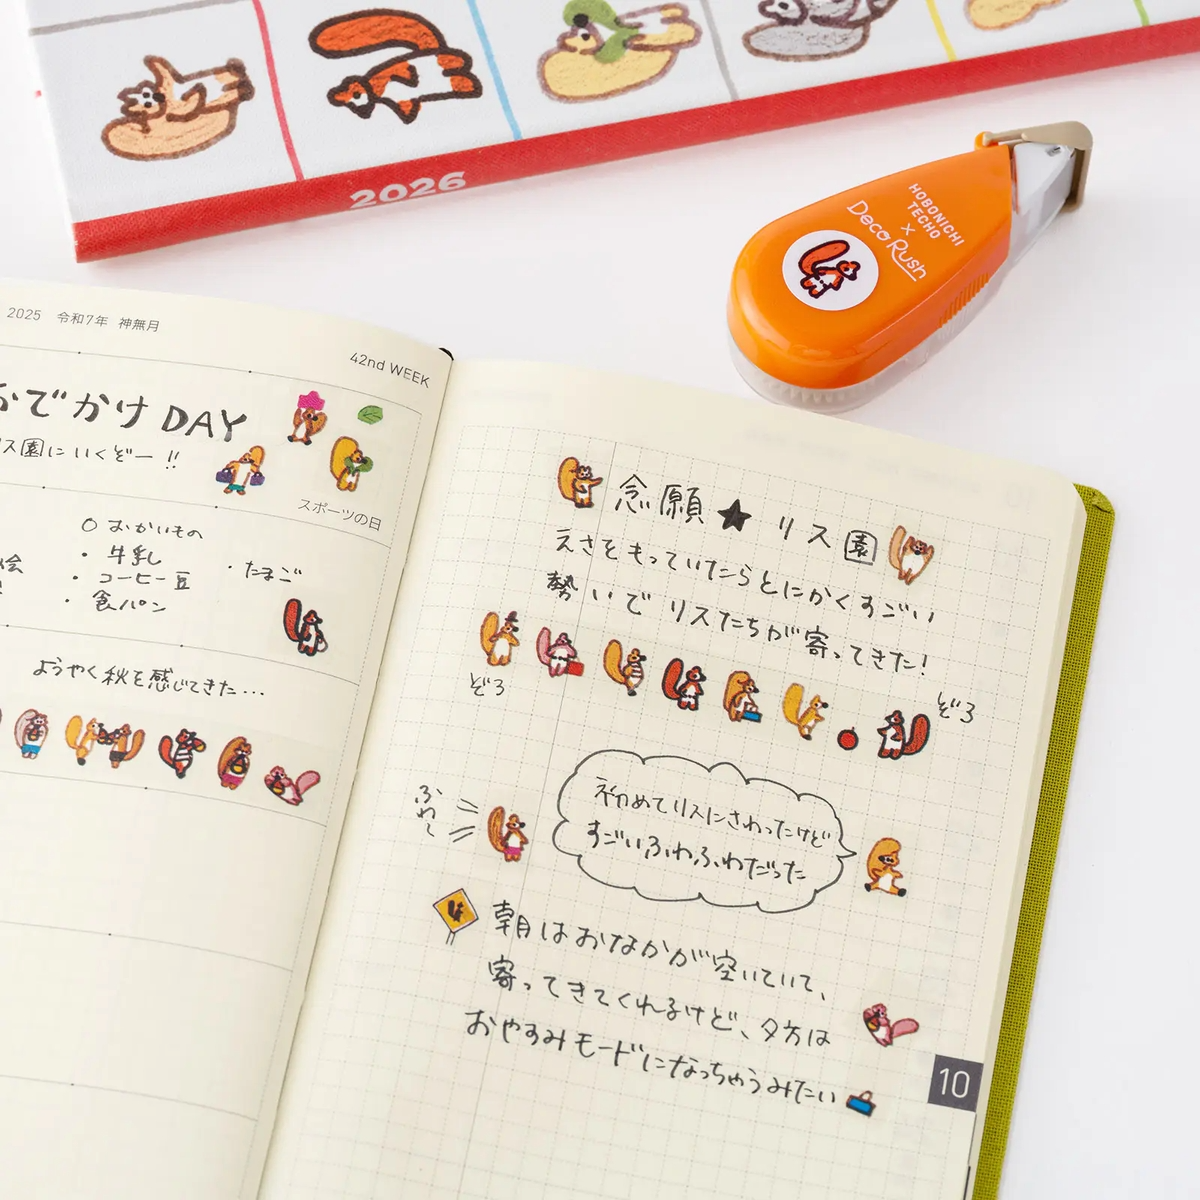 2026
HOBONICHI
TECHO
×
Deco Rush
2025 令和7年 神無月
42nd WEEK
おでかけ DAY
ス園にいくぞー!!
スポーツの日
○ おかいもの
・ 牛乳
・ コーヒー豆
・ 食パン
・たまご
絵
ようやく秋を感じてきた…
念願★リス園
えさをもっていたらとにかくすごい
勢いでリスたちが寄ってきた!
ぞろ
ぞろ
ふわ〜
初めてリスにさわったけど
すごいふわふわだった
朝はおなかが空いていて、
寄ってきてくれるけど、夕方は
おやすみモードになっちゃうみたい
10